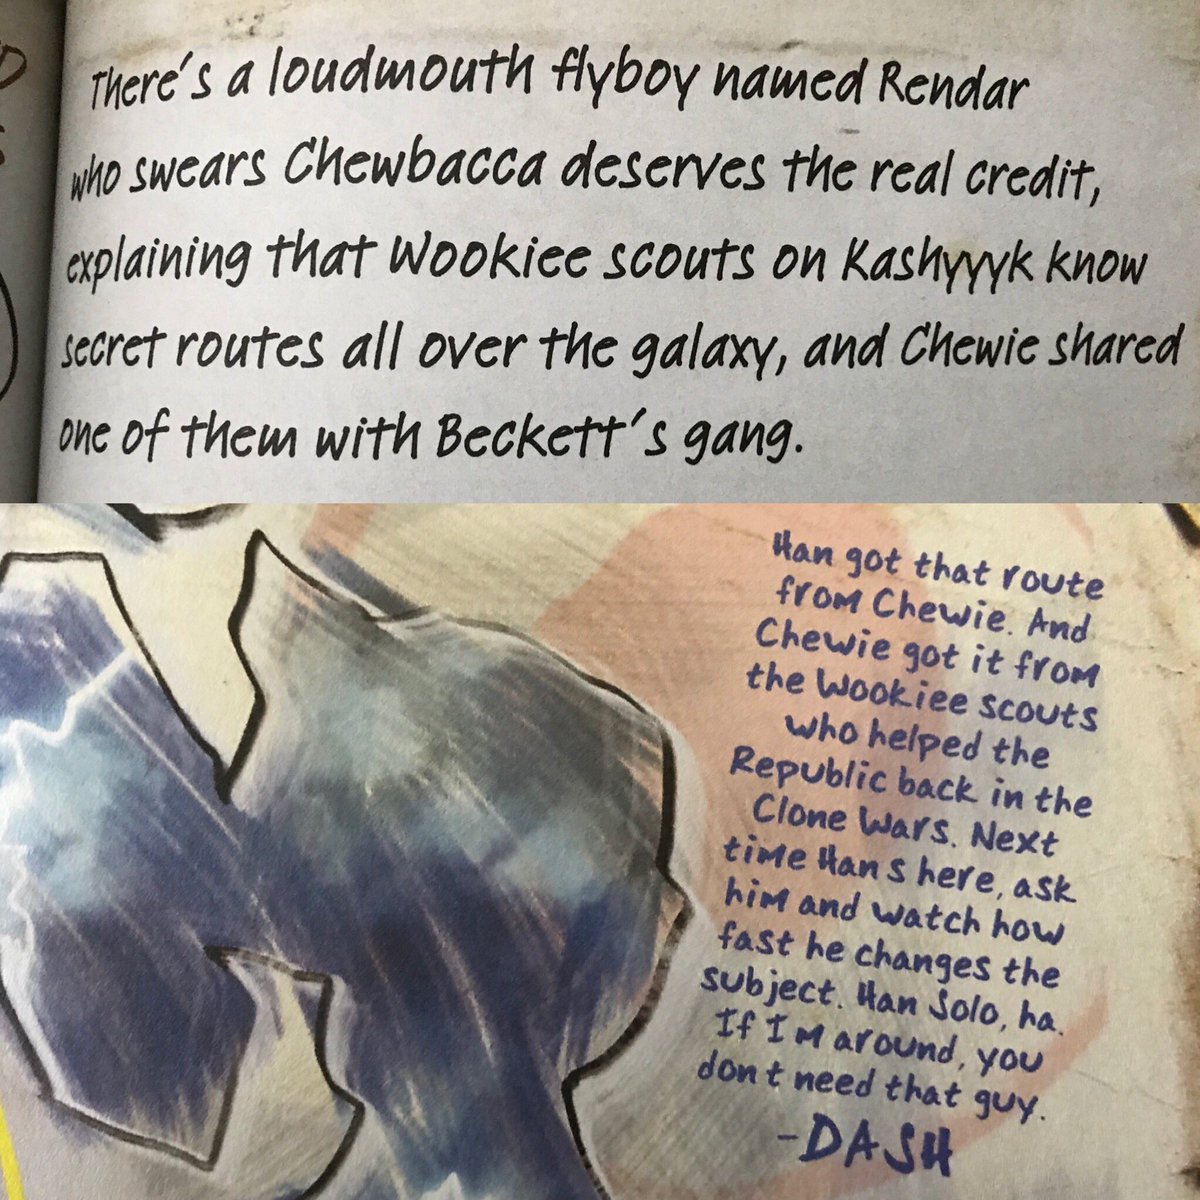 There's a loudmouth flyboy named Rendar
who swears Chewbacca deserves the real credit,
explaining that Wookiee scouts on Kashyyyk know
secret routes all over the galaxy, and Chewie shared
one of them with Beckett's gang.
Han got that route
from Chewie. And
Chewie got it from
the Wookiee scouts
who helped the
Republic back in the
Clone Wars. Next
time Han s here, ask
him and watch how
fast he changes the
subject. Han Solo, ha.
If I m around, you
don t need that guy.
-DASH